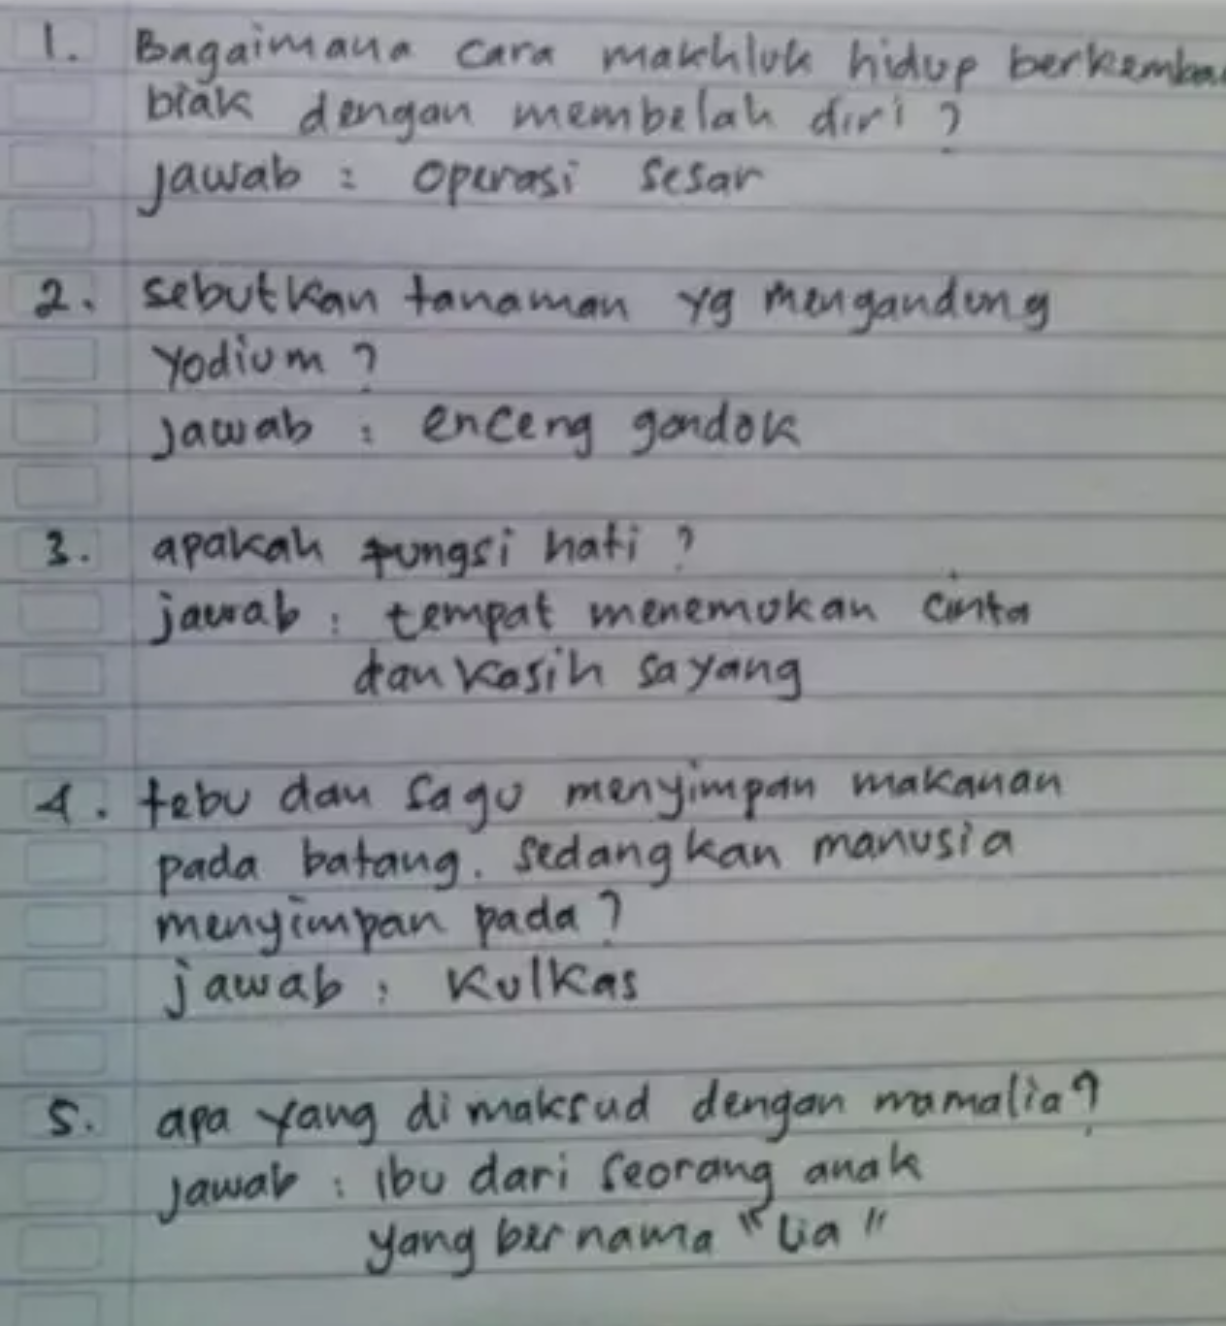 1. Bagaimana cara makhluk hidup berkemba
biak dengan membelah diri ?
jawab : operasi sesar
2. sebutkan tanaman yg mengandung
yodium ?
jawab : enceng gondok
3. apakah fungsi hati ?
jawab : tempat menemukan cinta
dan kasih sayang
4. tebu dan sagu menyimpan makanan
pada batang. sedangkan manusia
menyimpan pada ?
jawab : kulkas
5. apa yang di maksud dengan mamalia ?
jawab : ibu dari seorang anak
yang bernama "Lia"